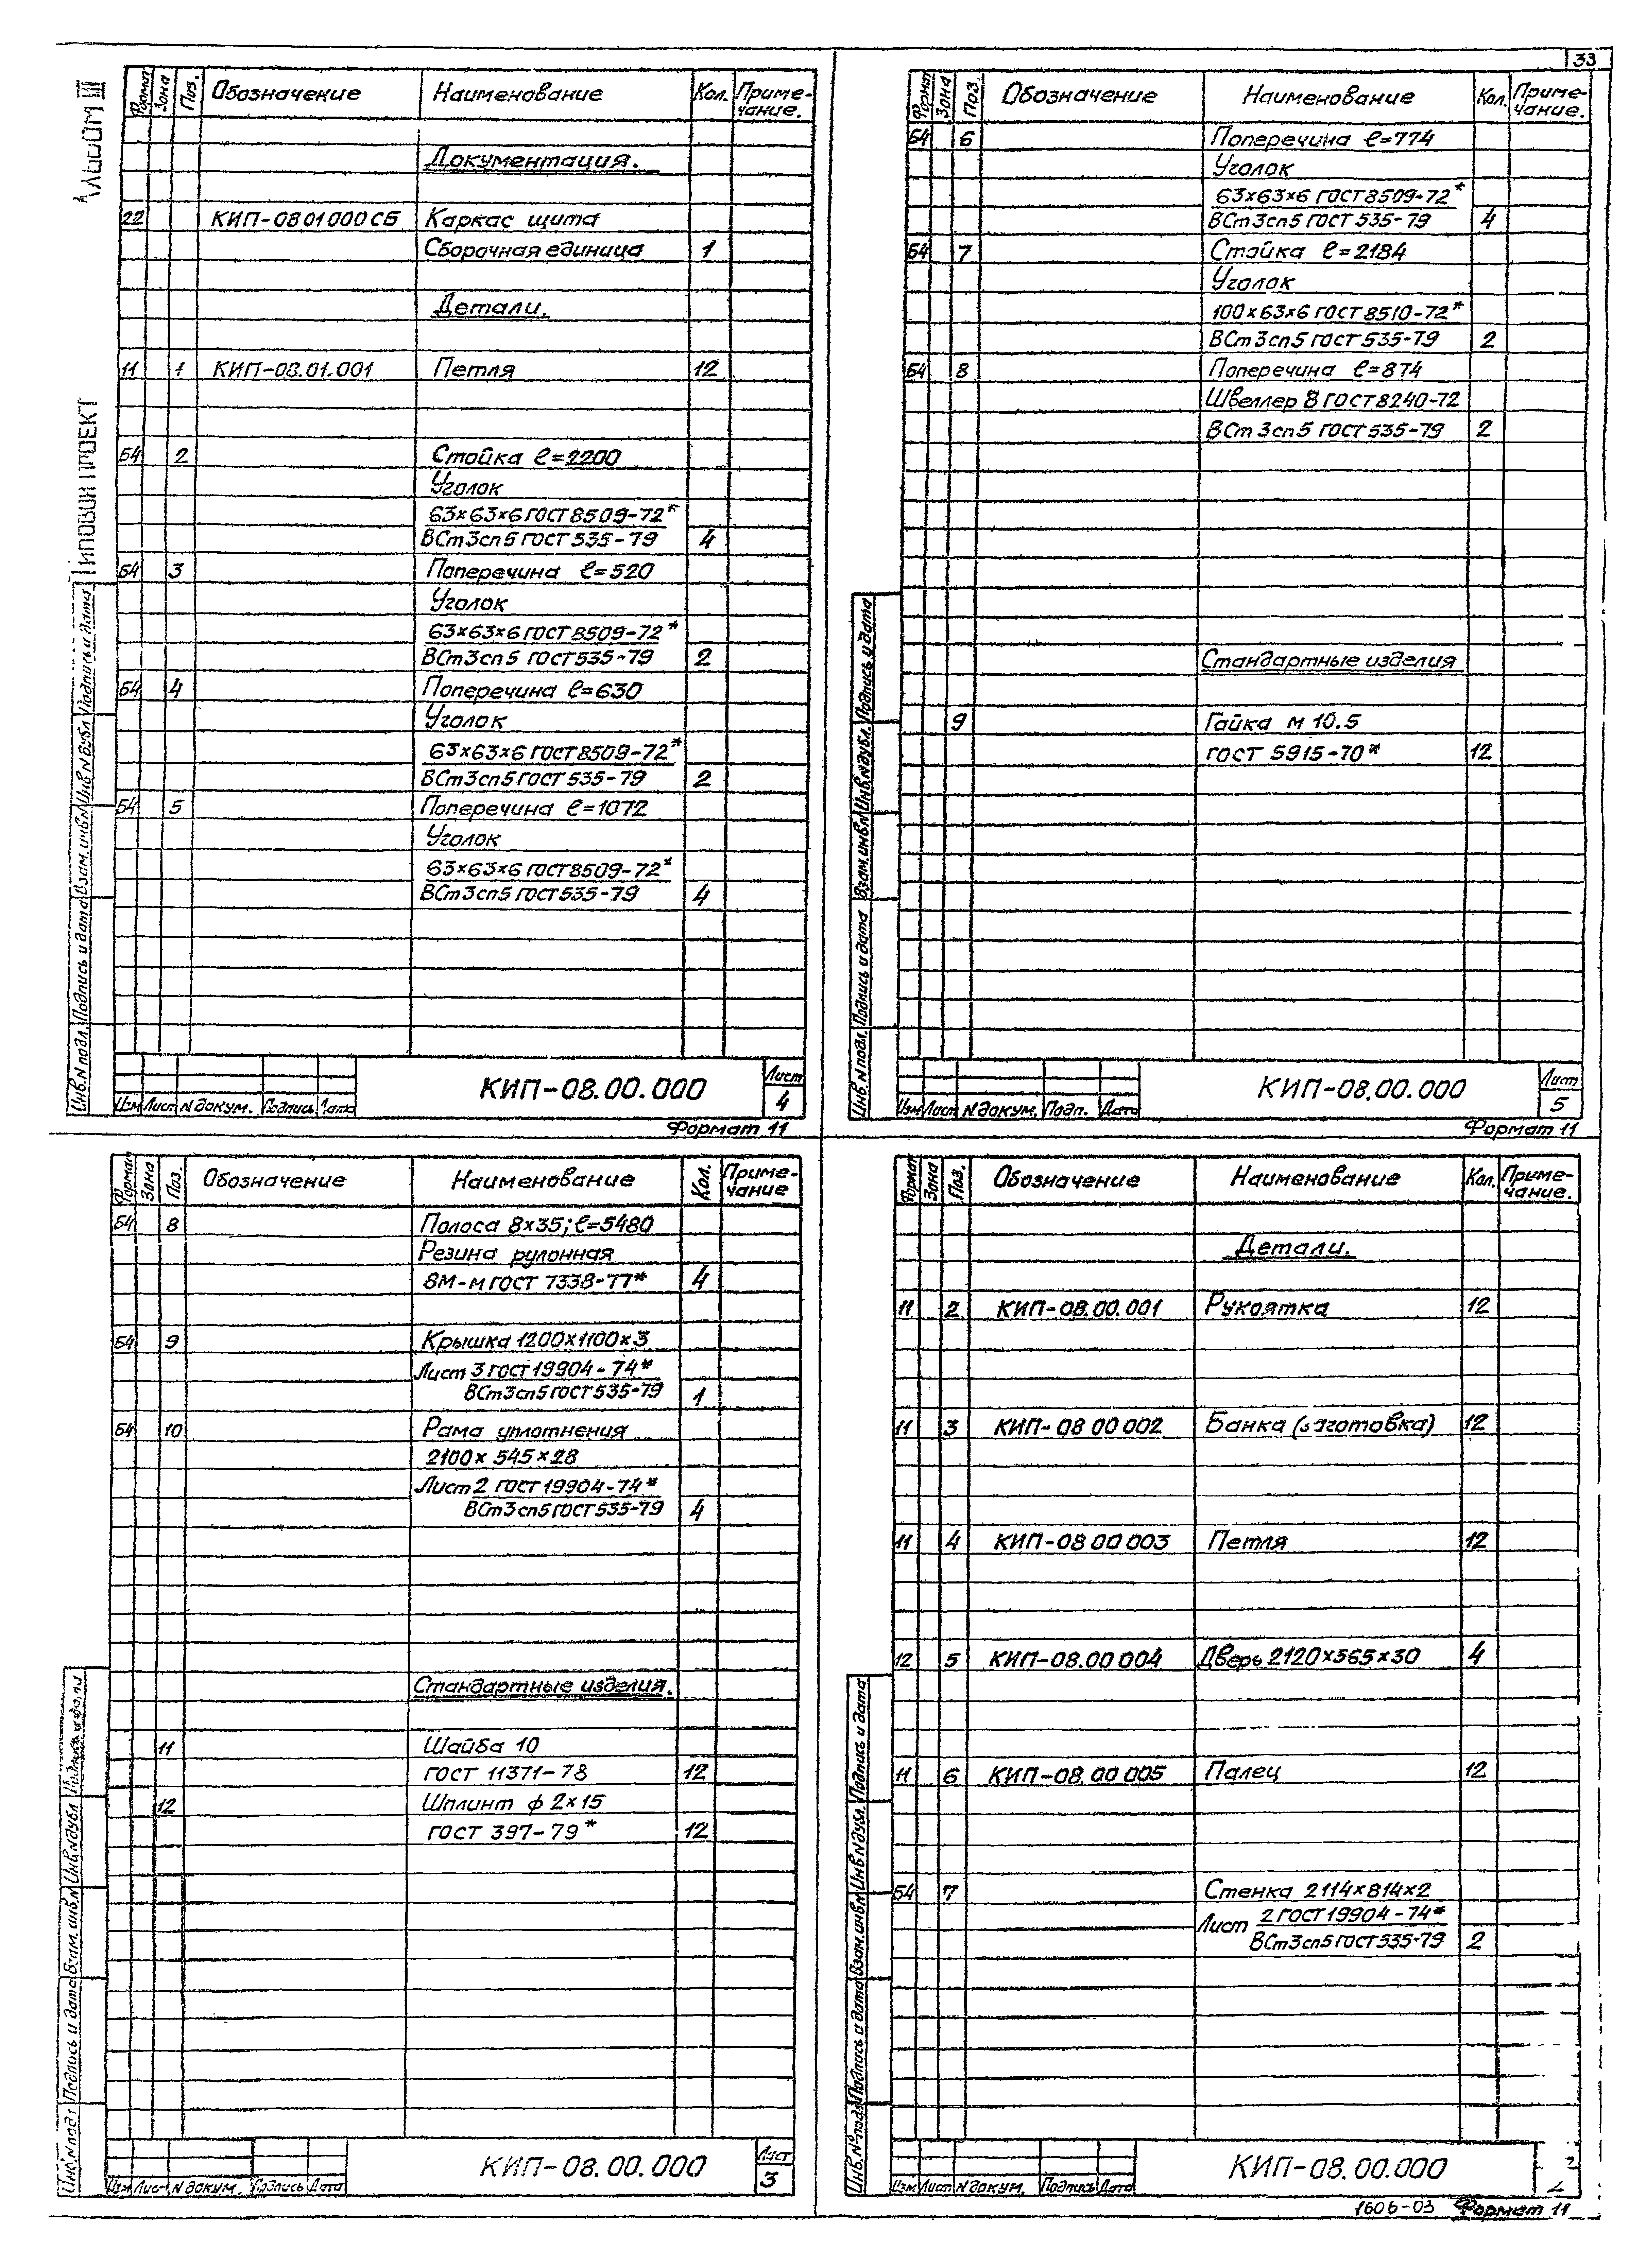 33
Альбом III
Типовой проект
Формат Зона Поз. Обозначение Наименование Кол. Примечание.
Документация.
22 КИП-0801000СБ Каркас щита
Сборочная единица 1
Детали.
11 1 КИП-08.01.001 Петля 12
Б4 2 Стойка ℓ=2200
Уголок
63×63×6 ГОСТ 8509-72*
ВСт3сп5 ГОСТ 535-79 4
Б4 3 Поперечина ℓ=520
Уголок
63×63×6 ГОСТ 8509-72*
ВСт3сп5 ГОСТ 535-79 2
Б4 4 Поперечина ℓ=630
Уголок
63×63×6 ГОСТ 8509-72*
ВСт3сп5 ГОСТ 535-79 2
Б4 5 Поперечина ℓ=1072
Уголок
63×63×6 ГОСТ 8509-72*
ВСт3сп5 ГОСТ 535-79 4
Инв.N подл. Подпись и дата Взам.инв.N Инв.N дубл. Подпись и дата
КИП-08.00.000
Лист
4
Изм Лист N докум. Подпись Дата
Формат 11
Формат Зона Поз. Обозначение Наименование Кол. Примечание.
Б4 6 Поперечина ℓ=774
Уголок
63×63×6 ГОСТ 8509-72*
ВСт3сп5 ГОСТ 535-79 4
Б4 7 Стойка ℓ=2184
Уголок
100×63×6 ГОСТ 8510-72*
ВСт3сп5 ГОСТ 535-79 2
Б4 8 Поперечина ℓ=874
Швеллер 8 ГОСТ 8240-72
ВСт3сп5 ГОСТ 535-79 2
Стандартные изделия
9 Гайка М 10.5
ГОСТ 5915-70* 12
Инв.N подл. Подпись и дата Взам.инв.N Инв.N дубл. Подпись и дата
КИП-08.00.000
Лист
5
Изм Лист N докум. Подп. Дата
Формат 11
Формат Зона Поз. Обозначение Наименование Кол. Примечание
Б4 8 Полоса 8×35; ℓ=5480
Резина рулонная
8М-м ГОСТ 7338-77* 4
Б4 9 Крышка 1200×1100×3
Лист 3 ГОСТ 19904-74*
ВСт3сп5 ГОСТ 535-79 1
Б4 10 Рама уплотнения
2100×545×28
Лист 2 ГОСТ 19904-74*
ВСт3сп5 ГОСТ 535-79 4
Стандартные изделия.
11 Шайба 10
ГОСТ 11371-78 12
12 Шплинт ф 2×15
ГОСТ 397-79* 12
Инв.N подл Подпись и дата Взам.инв.N Инв.N дубл Подпись и дата
КИП-08.00.000
Лист
3
Изм Лист N докум. Подпись Дата
Формат Зона Поз. Обозначение Наименование Кол. Примечание.
Детали.
11 2 КИП-08.00.001 Рукоятка 12
11 3 КИП-08 00 002 Банка (заготовка) 12
11 4 КИП-08 00 003 Петля 12
12 5 КИП-08.00 004 Дверь 2120×565×30 4
11 6 КИП-08.00 005 Палец 12
Б4 7 Стенка 2114×814×2
Лист 2 ГОСТ 19904-74*
ВСт3сп5 ГОСТ 535-79 2
Инв.№ подл Подпись и дата Взам.инв.N Инв.N дубл. Подпись и дата
КИП-08.00.000
Изм Лист N докум. Подпись Дата
1606-03 Формат 11